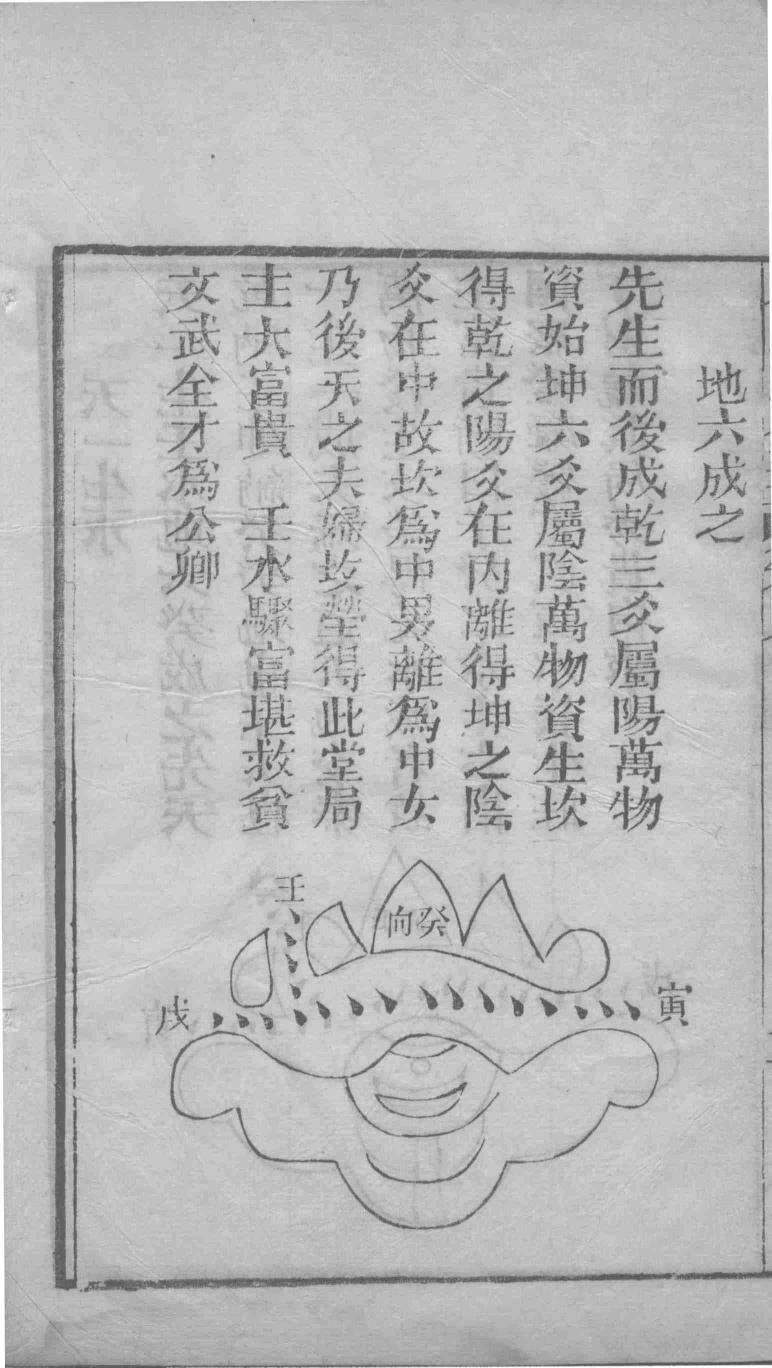 地六成之
先生而後成乾三爻屬陽萬物
資始坤六爻屬陰萬物資生坎
得乾之陽爻在内離得坤之陰
爻在中故坎爲中男離爲中女
乃後天之夫婦坟塋得此堂局
主大富貴　壬水驟富堪救貧
文武全才爲公卿
癸向
壬
寅
戌